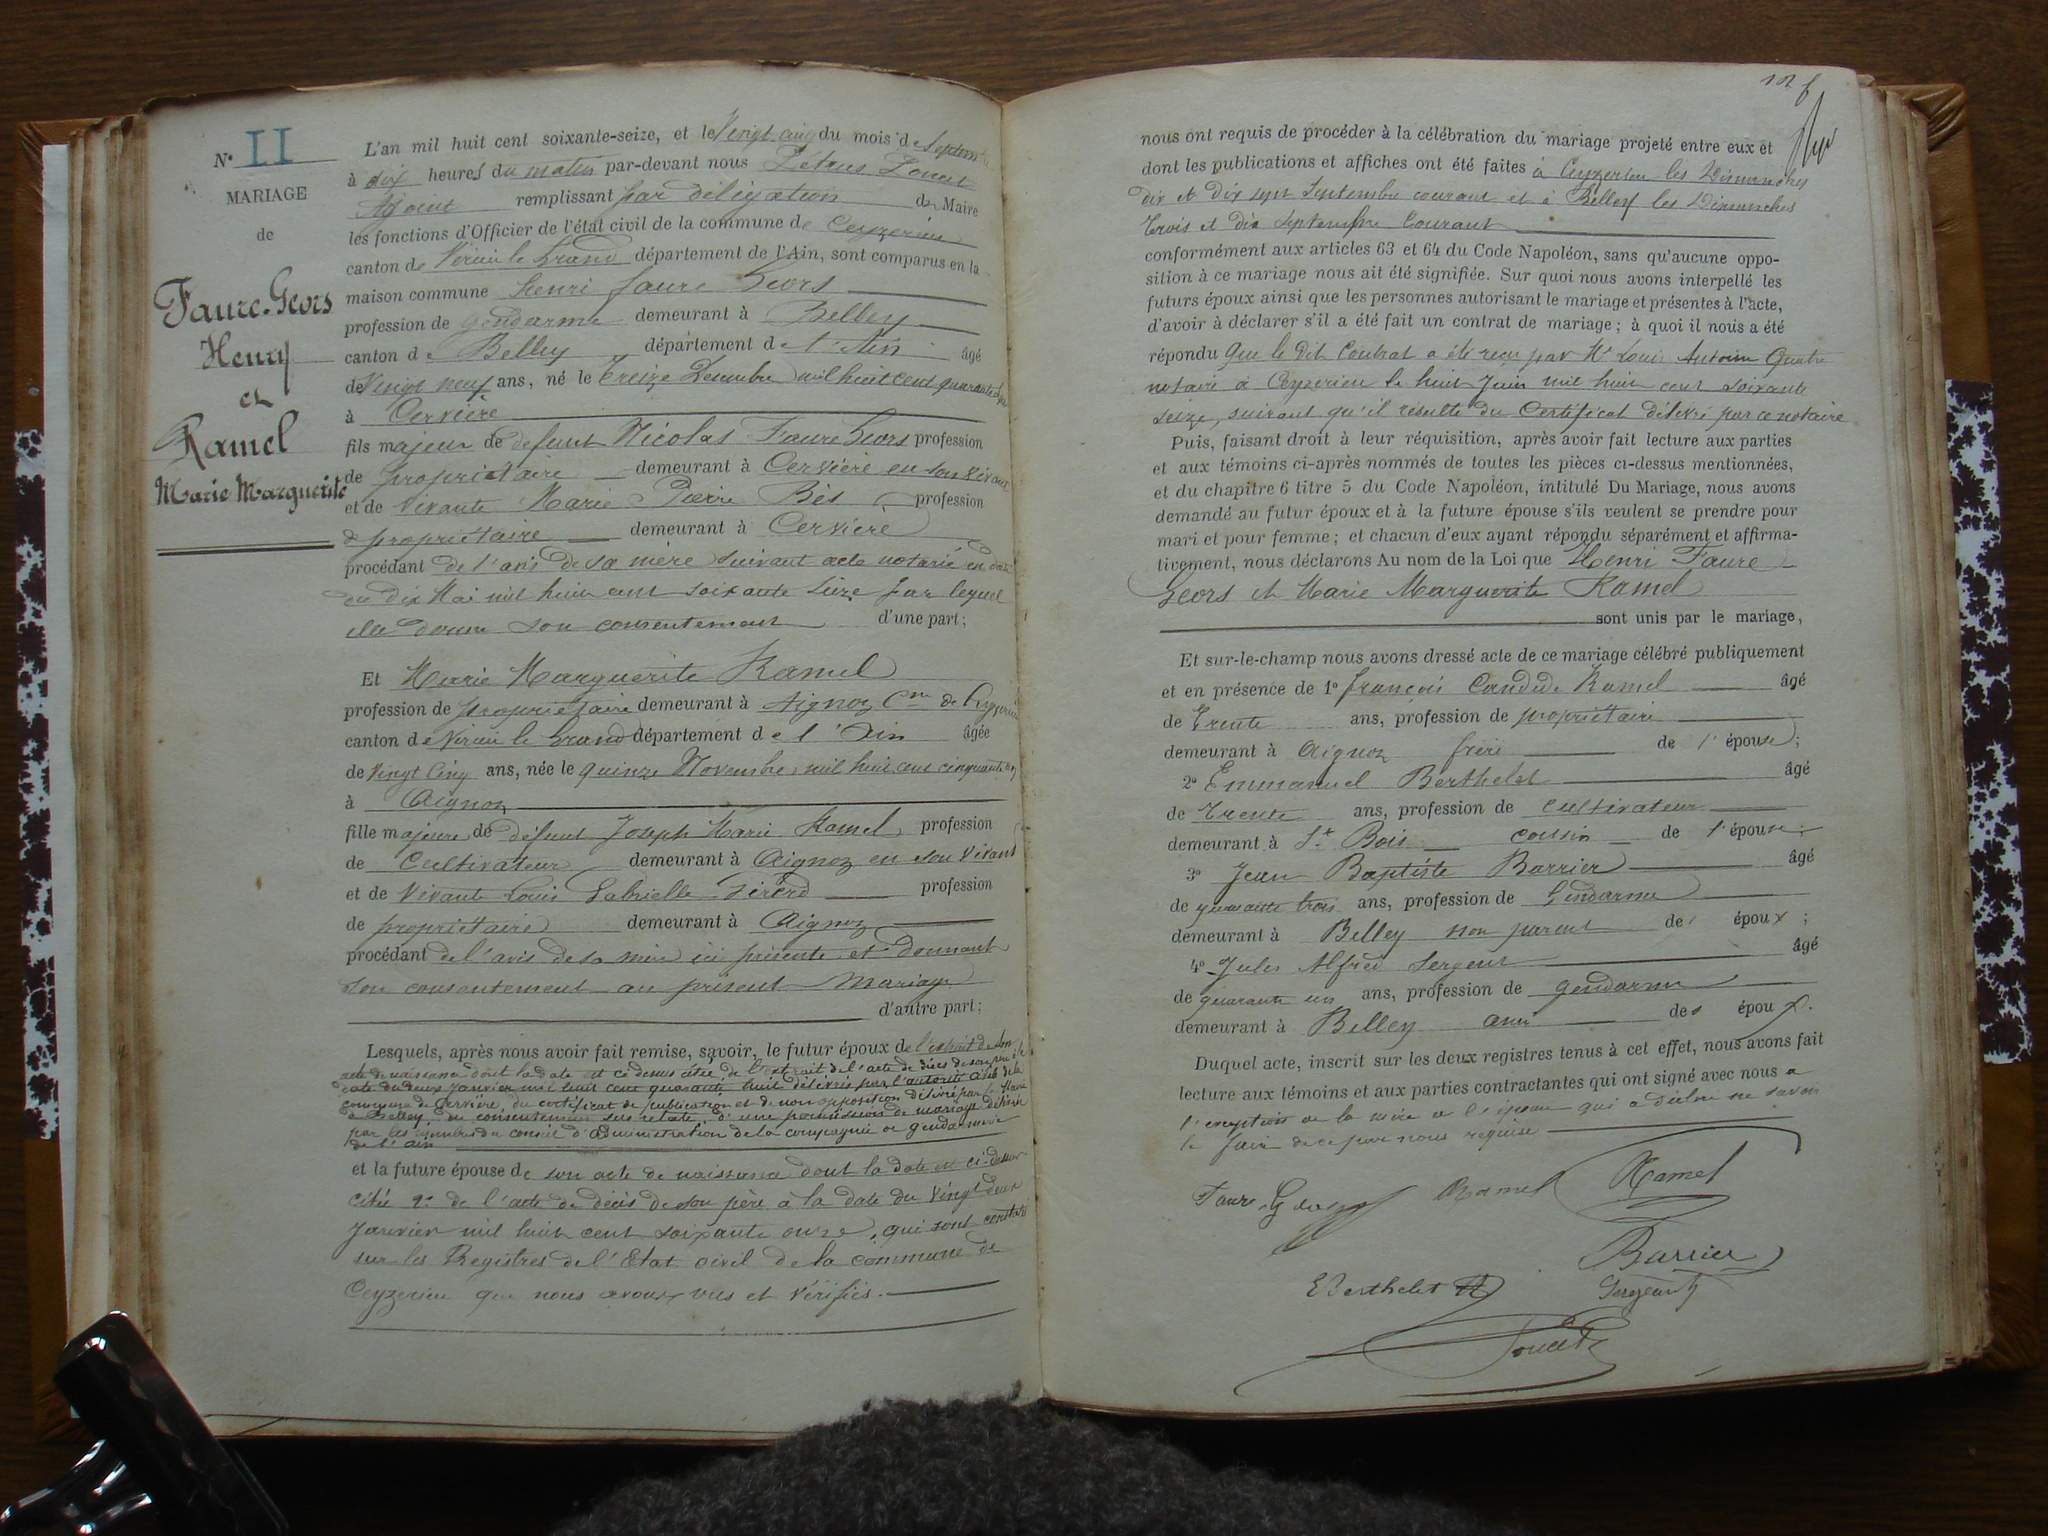 N° II
MARIAGE
de
Faure-Geors
Henry
et
Ramel
Marie Marguerite
L'an mil huit cent soixante-seize, et le Vingt cinq du mois de Septembre
à dix heures du matin par-devant nous Pétrus
Adjoint remplissant par délégation du Maire
les fonctions d'Officier de l'état civil de la commune de Ceyzerieu
canton de Virieu le Grand département de l'Ain, sont comparus en la
maison commune Henri Faure Geors
profession de Gendarme demeurant à Belley
canton de Belley département de l'Ain âgé
de Vingt neuf ans, né le treize Décembre mil huit cent quarante
à Cervière
fils majeur de défunt Nicolas Faure Geors profession
de propriétaire demeurant à Cervière en son vivant
et de vivante Marie Pierre Bès profession
de propriétaire demeurant à Cervière
procédant de l'avis de sa mère suivant acte notarié en date
du dix Mai mil huit cent soixante seize par lequel
elle donne son consentement d'une part;
Et Marie Marguerite Ramel
profession de propriétaire demeurant à Aignoz Cne de Ceyzerieu
canton de Virieu le Grand département de l'Ain âgée
de Vingt Cinq ans, née le quinze Novembre mil huit cent cinquante
à Aignoz
fille majeure de défunt Joseph Marie Ramel profession
de Cultivateur demeurant à Aignoz en son vivant
et de Vivante Louise Gabrielle profession
de propriétaire demeurant à Aignoz
procédant de l'avis de sa mère ici présente et donnant
son consentement au présent Mariage
d'autre part;
Lesquels, après nous avoir fait remise, savoir, le futur époux de l'extrait de son
acte de naissance dont la date est ci dessus citée, de l'extrait de l'acte de décès de son père à la
date du deux Janvier mil huit cent quarante huit délivrés par l'autorité civile de la
commune de Cervière, du certificat de publication et de non opposition délivré par le Maire
de Belley, du consentement sus relaté, d'une permission de mariage délivrée
par les membres du conseil d'administration de la compagnie de gendarmerie
de l'Ain
et la future épouse de son acte de naissance dont la date est ci-dessus
citée 2° de l'acte de décès de son père à la date du Vingt deux
Janvier mil huit cent soixante onze, qui sont constatés
sur les Registres de l'Etat civil de la commune de
Ceyzerieu que nous avons vus et vérifiés.
nous ont requis de procéder à la célébration du mariage projeté entre eux et
dont les publications et affiches ont été faites à Ceyzerieu les Dimanches
dix et dix sept Septembre courant et à Belley les Dimanches
trois et dix septembre courant
conformément aux articles 63 et 64 du Code Napoléon, sans qu'aucune oppo-
sition à ce mariage nous ait été signifiée. Sur quoi nous avons interpellé les
futurs époux ainsi que les personnes autorisant le mariage et présentes à l'acte,
d'avoir à déclarer s'il a été fait un contrat de mariage; à quoi il nous a été
répondu que le dit Contrat a été reçu par Me Louis Antoine
notaire à Ceyzerieu le huit Juin mil huit cent soixante
seize, suivant qu'il résulte du Certificat délivré par ce notaire
Puis, faisant droit à leur réquisition, après avoir fait lecture aux parties
et aux témoins ci-après nommés de toutes les pièces ci-dessus mentionnées,
et du chapitre 6 titre 5 du Code Napoléon, intitulé Du Mariage, nous avons
demandé au futur époux et à la future épouse s'ils veulent se prendre pour
mari et pour femme; et chacun d'eux ayant répondu séparément et affirma-
tivement, nous déclarons Au nom de la Loi que Henri Faure
Geors et Marie Marguerite Ramel
sont unis par le mariage,
Et sur-le-champ nous avons dressé acte de ce mariage célébré publiquement
et en présence de 1° François Candide Ramel âgé
de Trente ans, profession de propriétaire
demeurant à Aignoz frère de l'épouse;
2° Emmanuel Berthelet âgé
de Trente ans, profession de Cultivateur
demeurant à St Bois cousin de l'épouse;
3° Jean Baptiste Barrier âgé
de quarante trois ans, profession de Gendarme
demeurant à Belley non parent des époux;
4° Jules Alfred Sergent âgé
de quarante un ans, profession de gendarme
demeurant à Belley ami des époux.
Duquel acte, inscrit sur les deux registres tenus à cet effet, nous avons fait
lecture aux témoins et aux parties contractantes qui ont signé avec nous à
l'exception de la mère de l'épouse qui a déclaré ne savoir
le faire de ce par nous requise
Faure-Geors Ramel Ramel
Barrier
EBerthelet Sergeant